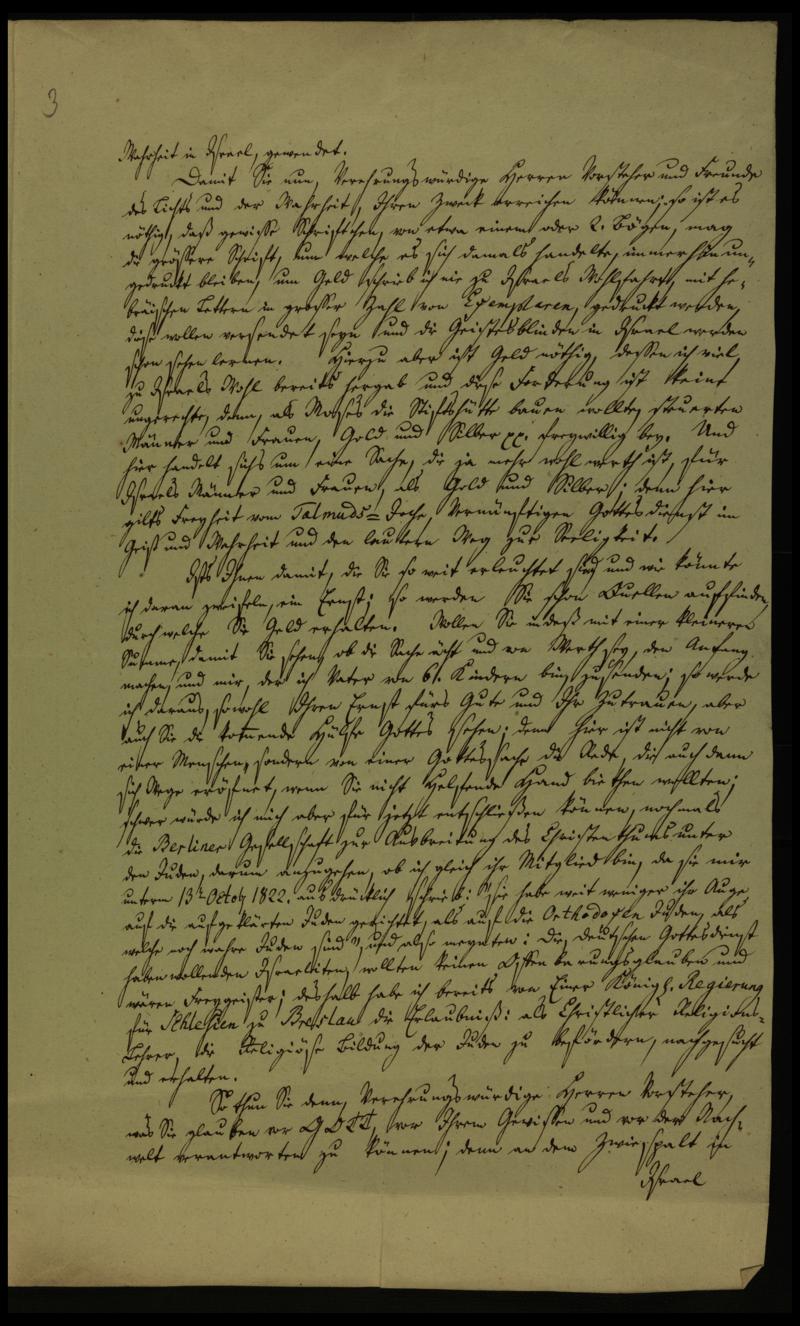 3
Wahrheit in Israel, gewendet.
Damit Sie nun, Verehrungswürdige Herren Vorsteher und Freunde
des Lichts und der Wahrheit, Ihren Zweck erreichen können; so ist es
nöthig, daß gewisse Schriftchen, von etwa einem oder 2. Bögen, mag
die grössere Schrift, um welche es sich damals handelte, immerhin un-
gedruckt bleiben, um Geld schrieb ich nie zu Israels Wohlfahrt, mit he-
bräischen Lettern in grosser Zahl von Exemplaren, gedruckt werden,
diese wollen versendet seyn und die Geistesblinden in Israel werden
schon sehen lernen. Hierzu aber ist Geld nöthig, dessen ich viel,
zu Israels Wohl bereits hergab und diese Forderung ist keine
ungerechte, denn, als Moses die Stiftshütte bauen wollte, steuerten
Männer und Frauen, Gold und Silber pp. freywillig bey. Und
hier handelt sichs um eine Sache, die ja mehr wohl werth ist, für
Israels Männer und Frauen, als Gold und Silber; denn hier
gilts Freyheit vom Talmuds-Joche, Vernünftigen Gottesdienst im
Geist und Wahrheit und den lautern Weg zur Seeligkeit.
Ists Ihnen damit, die Sie so weit erleuchtet sind und wie könnte
ich daran zweifeln, ein Ernst; so werden Sie schon Quellen auffinden,
durch welche Sie Geld erhalten. Wollen Sie indeß mit einer kleineren
Summe, damit Sie sehen, ob die Sache ächt und von Werth sey, den Anfang
machen, und mir, der ich Vater von 6. Kindern bin, zusenden; so werde
ich daraus, sowohl Ihren Ernst fürs Gute und Ihr Zutrauen, aber
auch Sie die kommende Hülfe Gottes sehen; denn hier ist nicht von
einer Menschen, sondern von einer Gottessache die Rede, die auch dann
sich Wege eröfnet, wenn Sie nicht helfende Hand biethen wollten;
schwer würde ich mich aber für jetzt entschließen können, nochmals
die Berliner Gesellschaft zur Ausbreitung des Christenthums unter
den Juden, darum anzugehen, ob ich gleich ihr Mitglied bin, da sie mir
unterm 13t Octobr 1822. ausdrücklich schrieb: "sie habe weit weniger ihr Auge
auf die aufgeklärten Juden gerichtet, als auf die Orthodoxen Juden, als
welche noch wahre Juden sind", und also meynten: Die, deutschen Gottesdienst
haben wollenden Israeliten, wollten keinen Offenbarungsglauben und
wären Freygeister; deshalb habe ich bereits von Einer Königl. Regierung
für Schlesien zu Breslau die Erlaubniß: als Christlicher Religions-
Lehrer, die Religiöse Bildung der Juden zu befördern, nachgesucht
und erhalten.
So thun Sie denn, Verehrungswürdige Herren Vorsteher,
was Sie glauben vor GOTT, vor Ihrem Gewissen und vor der Nach-
welt verantworten zu können; denn an dem Zwiespalt in
Israel